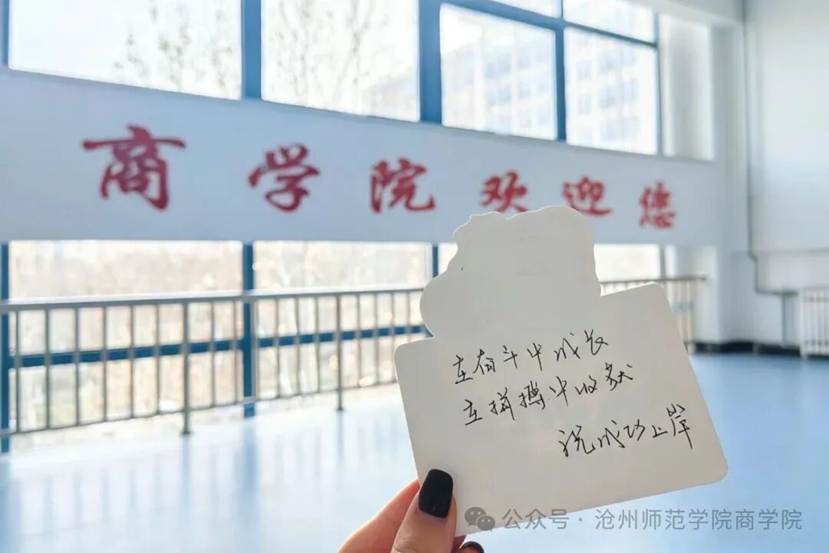 商学院欢迎您
在奋斗中成长
在拼搏中收获
祝成功上岸
公众号·沧州师范学院商学院